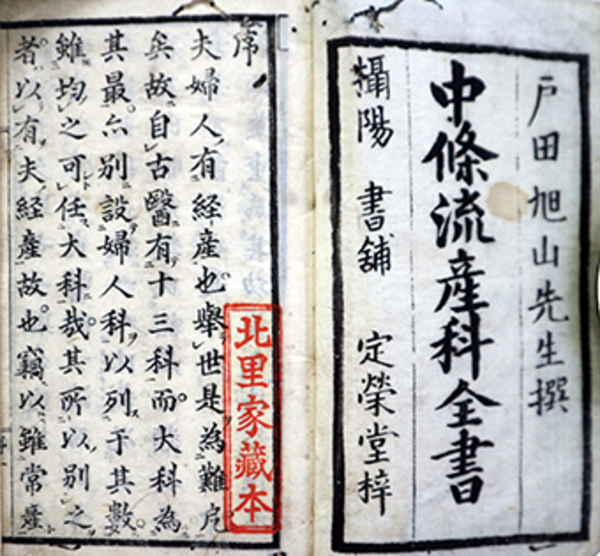 戸田旭山先生撰
中條流產科全書
攝陽 書舗 定榮堂梓
序
北里家藏本
夫婦人有經產也舉世是為難戹
矣故自古醫有十三科而大科為
其最亦別設婦人科以列于其數
雖均之可任大科哉其所以別之
者以有夫經產故也竊以雖常產